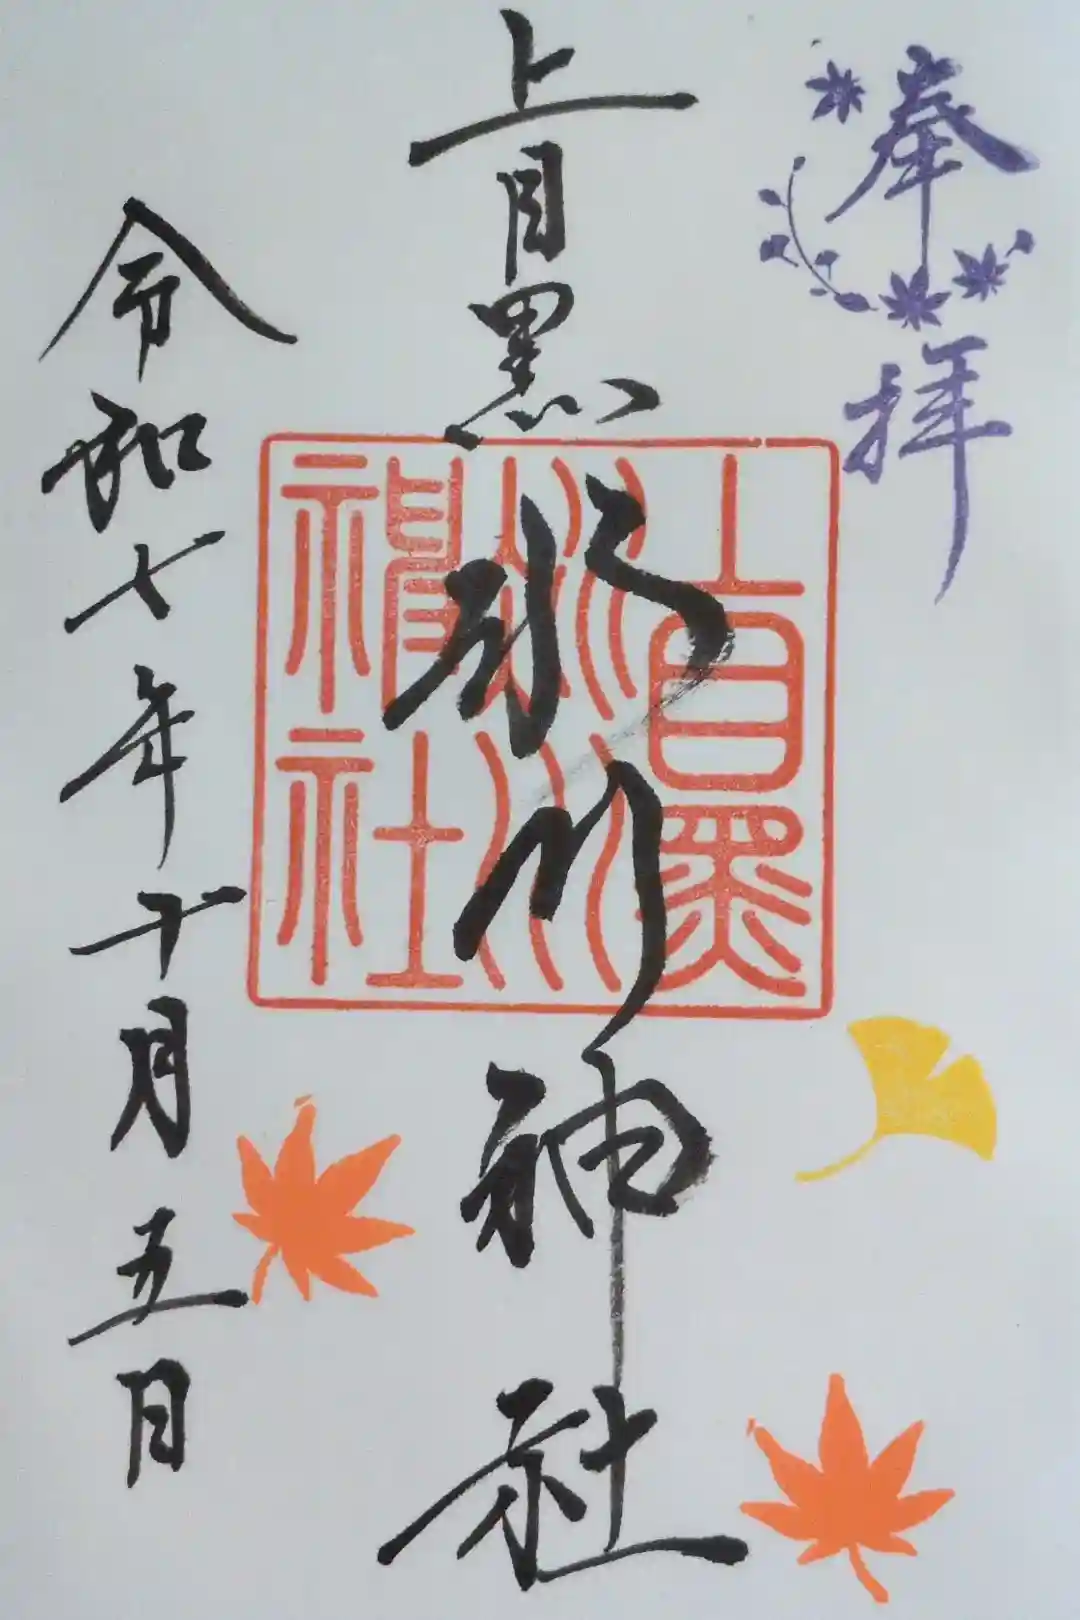 奉拝
上目黒氷川神社
上目黒
氷川
神社
令和七年十月五日